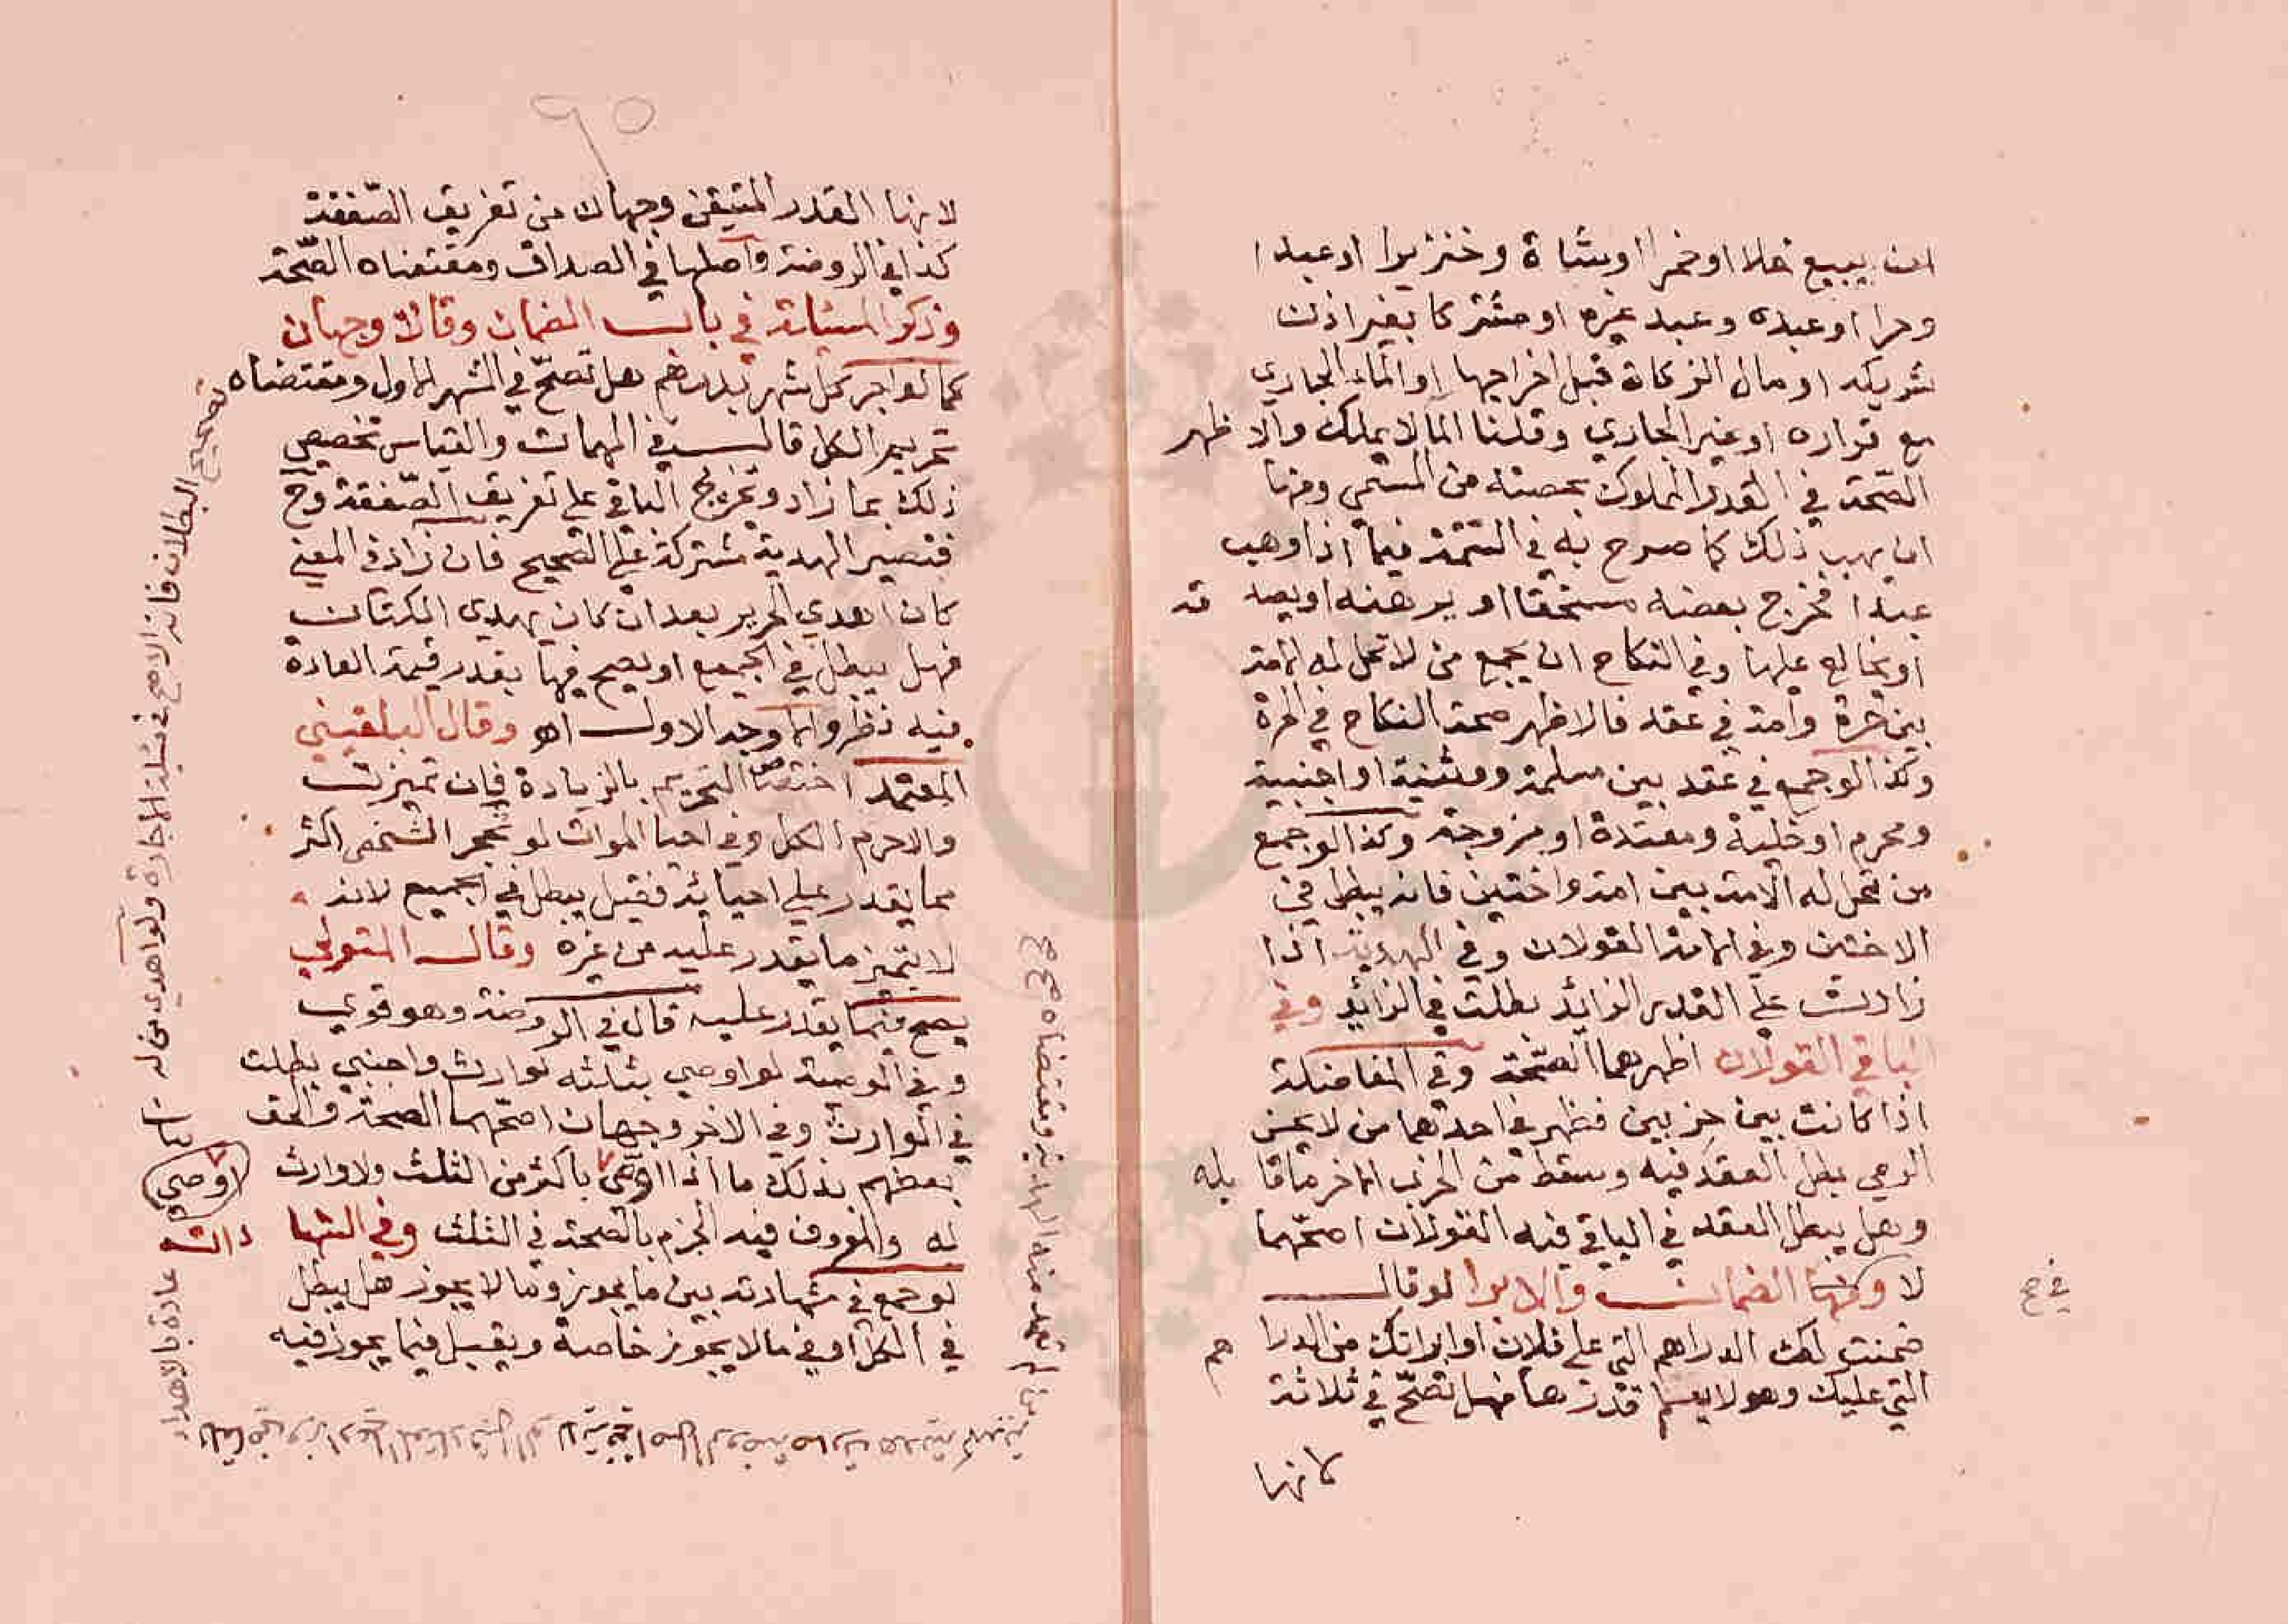 ان يبيع خلا او خمرا او شاة وخنزيرا او عبدا
وحرا او عبده وعبد غيره او مشتركا بغير اذن
شريكه او مال الزكاة قبل اخراجها او الماء الجاري
مع قراره او غير الجاري وقلنا الما لا يملك والاظهر
الصحة في القدر المملوك بحصته من المسمى ومنها
ان يهب ذلك كما صرح به في التتمة فيما اذا وهب
عبدا فخرج بعضه مستحقا او يرهنه او يصدقه
او يخالع عليها وفي النكاح ان يجمع من لا تحل له الامة
بين حرة وامة في عقد فالاظهر صحة النكاح في الحرة
وكذا لو جمع في عقد بين مسلمة ووثنية او اجنبية
ومحرم او خلية ومعتدة او مزوجة وكذا لو جمع
من تحل له الامة بين امة واختين فانه يبطل في
الاختين وفي الامة القولان وفي الهدية اذا
زادت على القدر الزائد بطلت في الزائد وفي
الباقي القولان اظهرهما الصحة وفي المفاضلة
اذا كانت بين حزبين فظهر في احدهما من لا يحسن
الرمي بطل العقد فيه وسقط من الحزب الاخر مقابله
وهل يبطل العقد في الباقي فيه القولان اصحهما
لا ومنها الضمان والابرا لو قال
ضمنت لك الدراهم التي على فلان او ابراتك من الدراهم
التي عليك وهو لا يعلم قدرها فهل تصح في ثلاثة
كانها
لانها القدر المتيقن وجهان من تفريق الصفقة
كذا في الروضة واصلها في الصداق ومقتضاه الصحة
وذكر المسئلة في باب الضمان وقالا وجهان
كما لو اجر كل شهر بدرهم هل تصح في الشهر الاول ومقتضاه
تحريم الكل قال في المهمات والقياس تخصيص
ذلك بما زاد وتخريج الباقي على تفريق الصفقة وح
فتصير الهدية مشتركة على الصحيح فان زاد في المعنى
كان اهدي الحرير بعد ان كان يهدي الكتان
فهل يبطل في الجميع او يصح فيها بقدر قيمة العادة
فيه نظر والاوجه الاول اهو وقال البلقيني
المعتمد اختصاص التحريم بالزيادة فان تميزت
والاحرم الكل وفي احيا الموات لو تحجر الشخص اكثر
مما يقدر على احيائه فقيل يبطل في الجميع لانه
لا يتميز ما يقدر عليه من غيره وقال المتولي
يصح فيما يقدر عليه قال في الروضة وهو قوي
وفي الوصية لو اوصي بثلثه لوارث واجنبي بطلت
في الوارث وفي الاخر وجهان اصحهما الصحة والحق
بعضهم بذلك ما اذا اوصى باكثر من الثلث ولا وارث
له والمعروف فيه الجزم بالصحة في الثلث وفي الشهادات
لو جمع في شهادته بين ما يجوز وما لا يجوز هل يبطل
في الكل او في ما لا يجوز خاصة ويقبل فيما يجوز فيه
تصحيح البطلان فانه الاصح في مسئلة الاجارة ولو اهدي من له
عادة بالاهدا
اوصي